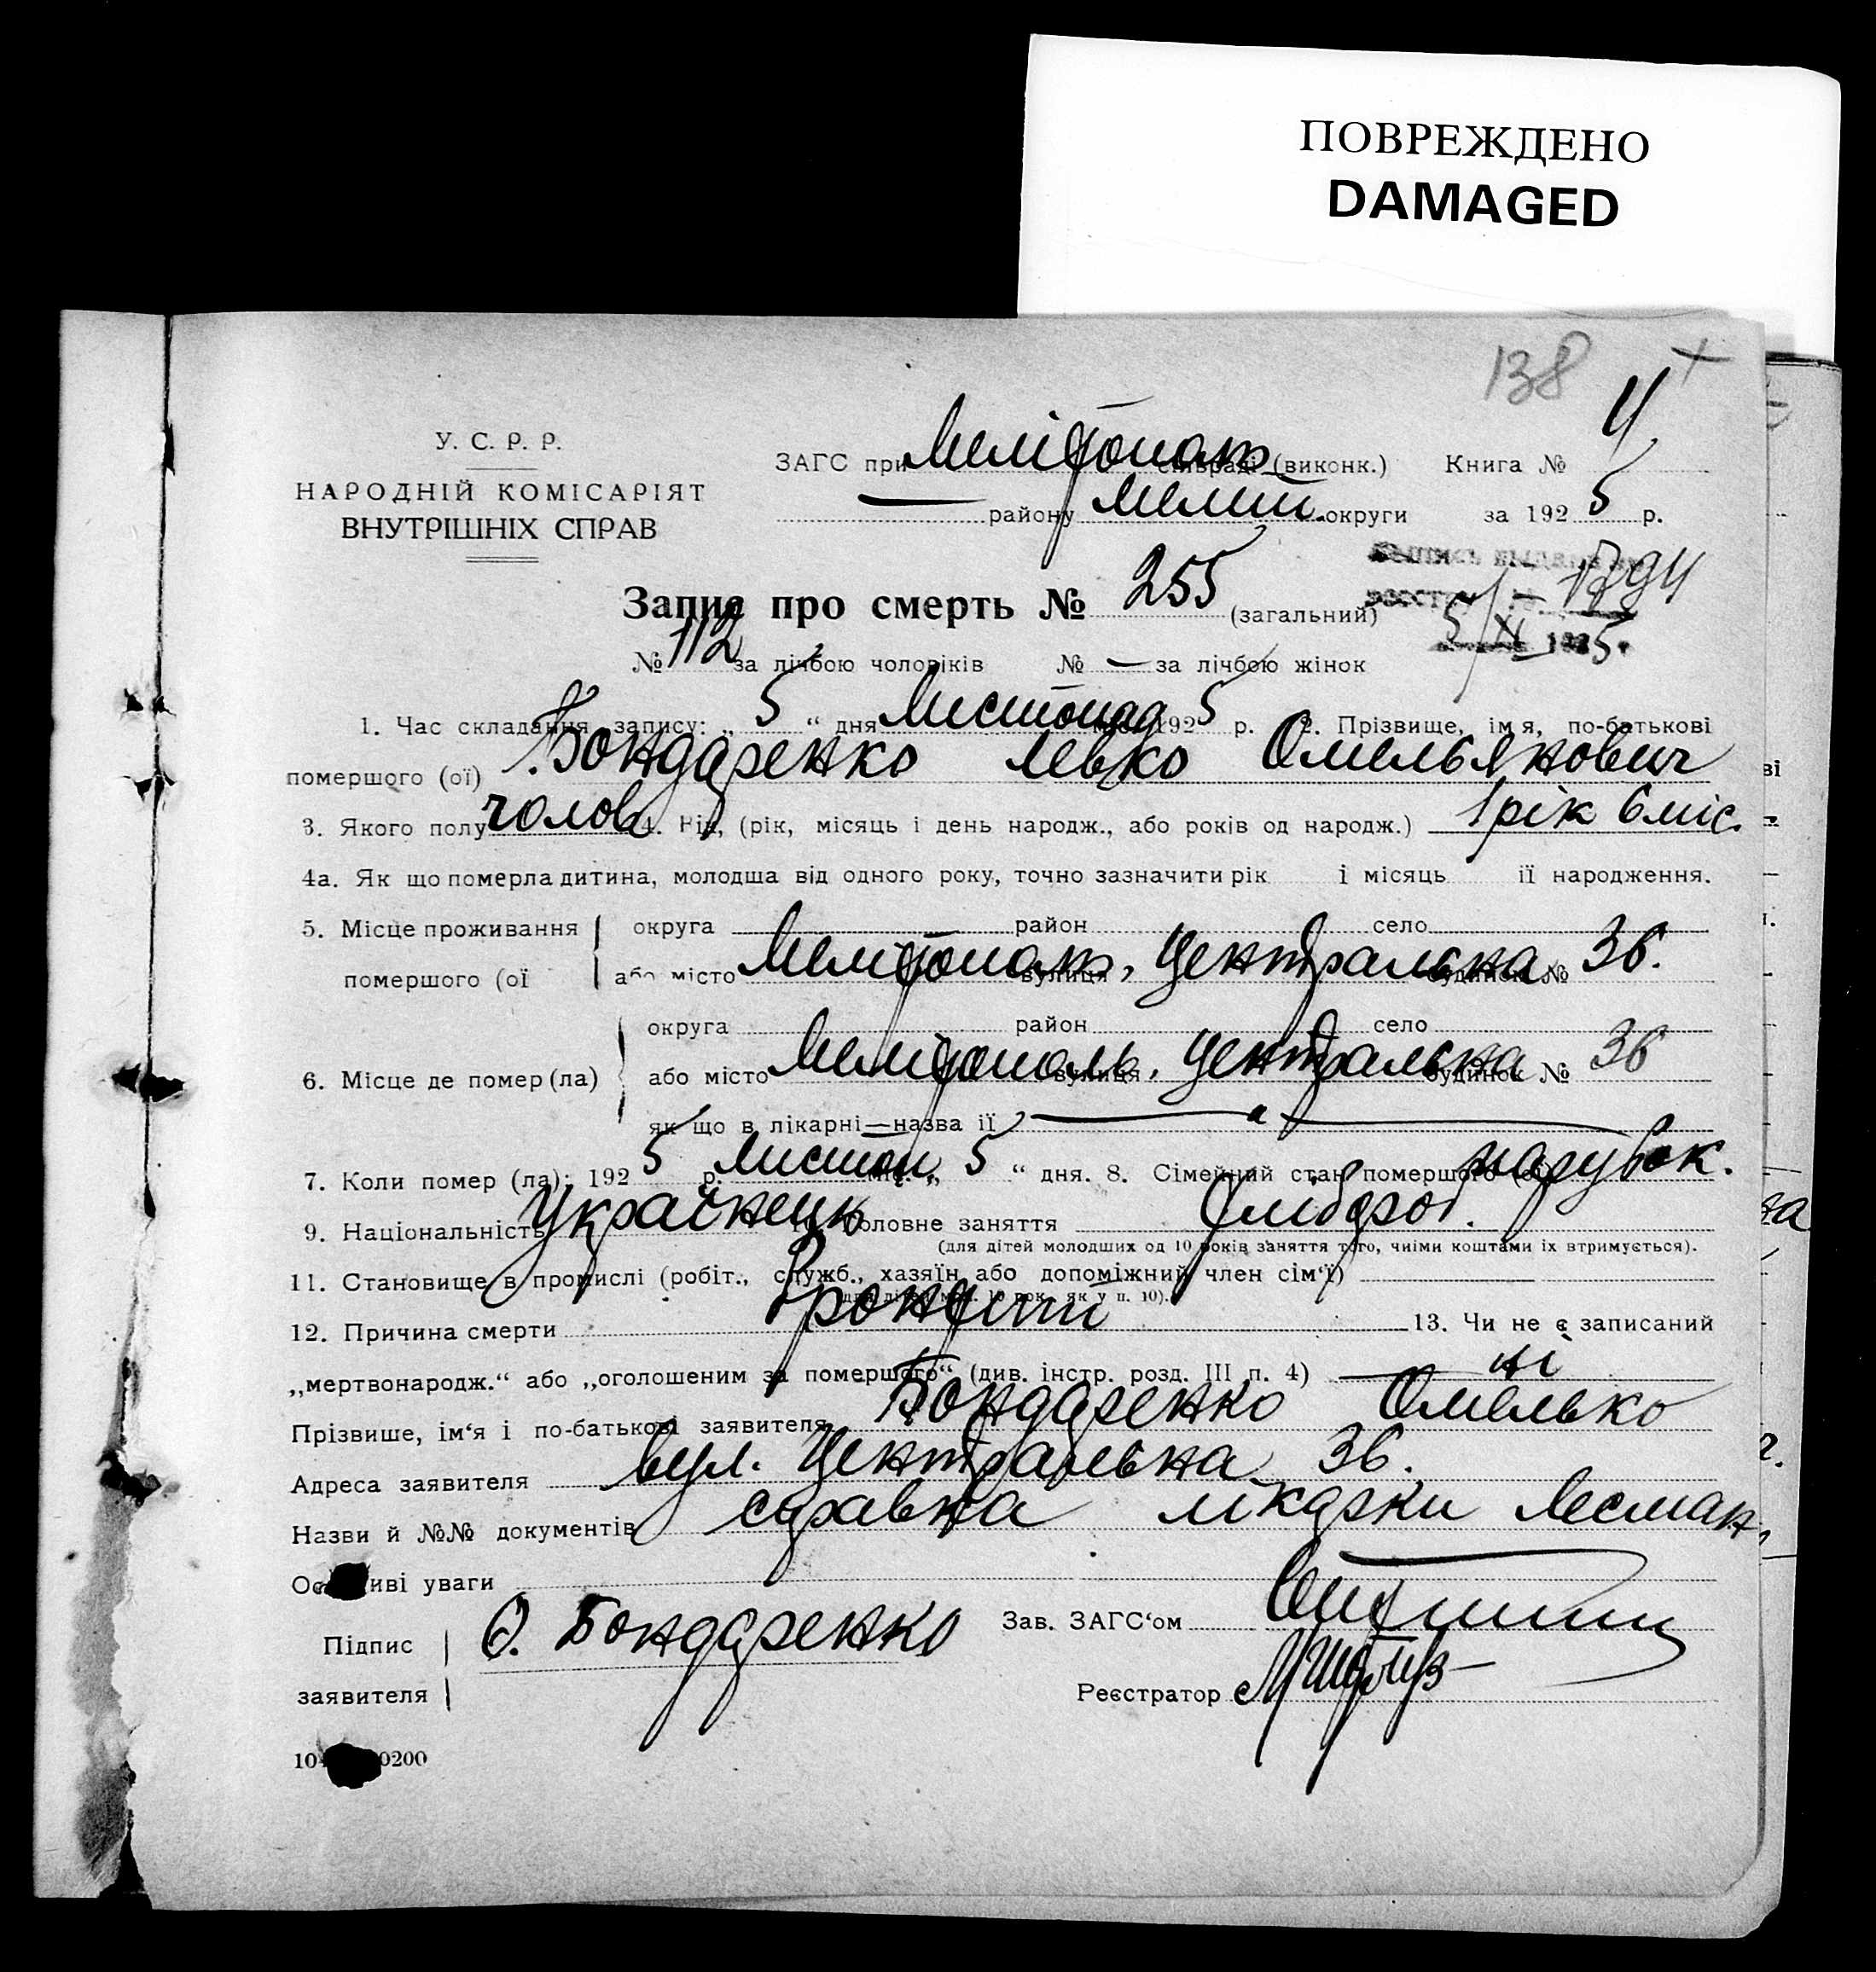 ПОВРЕЖДЕНО
DAMAGED
138
4
У. С. Р. Р.
НАРОДНІЙ КОМІСАРІЯТ
ВНУТРІШНІХ СПРАВ
ЗАГС при Мелітополь сільраді (виконк.) Книга №
— району Мелит. округи за 1925 р.
Запис про смерть № 255 (загальний)
1794
5/XI 1925.
№ 112 за лічбою чоловіків № — за лічбою жінок
1. Час складання запису: „ 5 “ дня Листопад 1925 р. 2. Прізвище, імя, по-батькові
помершого (ої) Бондаренко Левко Омельянович
3. Якого полу чолов 4. Вік, (рік, місяць і день народж., або років од народж.) 1 рік 6 міс.
4а. Як що померла дитина, молодша від одного року, точно зазначити рік і місяць її народження.
5. Місце проживання округа район село
помершого (ої або місто Мелітополь, вулиця Центральна будинок № 36.
6. Місце де помер (ла) округа район село
або місто Мелітополь, вулиця Центральна будинок № 36
як що в лікарні—назва її —
7. Коли помер (ла): 1925 р. Листоп. міс. „ 5 “ дня. 8. Сімейний стан помершого (ої) парубок.
9. Національність Українець 10. Головне заняття
(для дітей молодших од 10 років заняття того, чиїми коштами їх втримується).
11. Становище в промислі (робіт., служб., хазяїн або допоміжний член сім'ї) —
(для дітей мол. 10 рок. як у п. 10).
12. Причина смерти 13. Чи не є записаний
„мертвонародж.“ або „оголошеним за помершого“ (див. інстр. розд. III п. 4) — ні
Прізвише, ім'я і по-батькові заявителя Бондаренко Омелько
Адреса заявителя вул. Центральна 36.
Назви й №№ документів справка лікарки Лесман,
Ос иві уваги
Підпис
заявителя О. Бондаренко
Зав. ЗАГС'ом
Реєстратор
10 0200